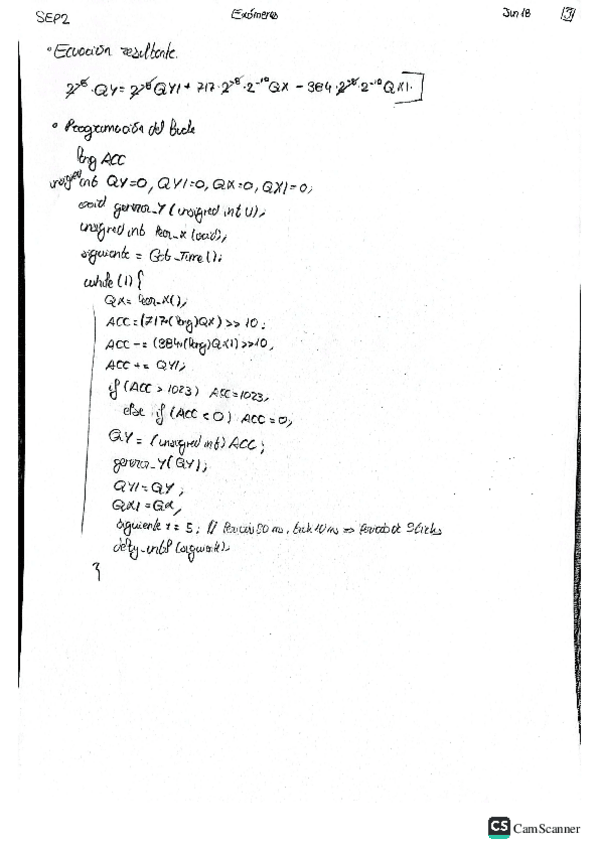 SEP2
Exámenes
Jun 18
3
• Ecuación resultante.
2^-8 · QY = 2^-8 QY1 + 717 · 2^-8 · 2^-10 QX - 384 · 2^-8 · 2^-10 QX1.
• Programación del Bucle
long ACC
unsigned int QY=0, QY1=0, QX=0, QX1=0;
void generar_Y (unsigned int U);
unsigned int leer_X (void);
siguiente = Get_Time();
while (1) {
QX = leer_X();
ACC = (717*(long)QX) >> 10;
ACC -= (384*(long)QX1)>>10;
ACC += QY1;
if (ACC > 1023) ACC=1023;
else if (ACC < 0) ACC = 0;
QY = (unsigned int) ACC;
generar_Y(QY);
QY1 = QY;
QX1 = QX;
siguiente += 5; // Periodo 50 ms, tick 10 ms => Periodo de 5 ticks
delay_until (siguiente);
}
CS CamScanner